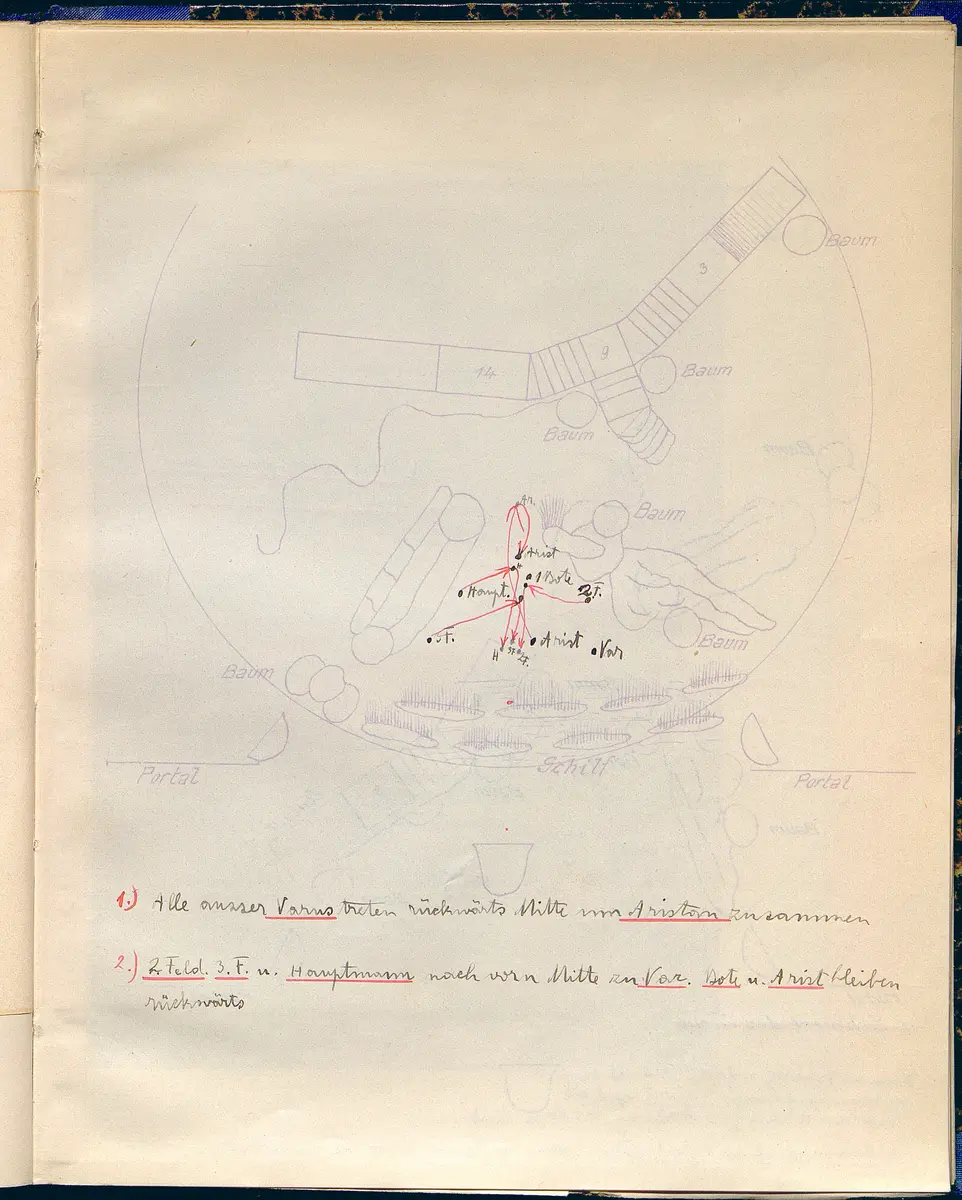 Baum
3
9
Baum
14
Baum
Baum
Ar.
Arist
1 Bote
Haupt.
2 F.
3 F.
Arist
Var
H
3F.
2F.
Baum
Baum
Schilf
Portal
Portal
1.) Alle ausser Varus treten rückwärts Mitte um Aristan zusammen
2.) 2 Feld. 3. F. u. Hauptmann nach vorn Mitte zu Var. Bote u. Arist bleiben
rückwärts